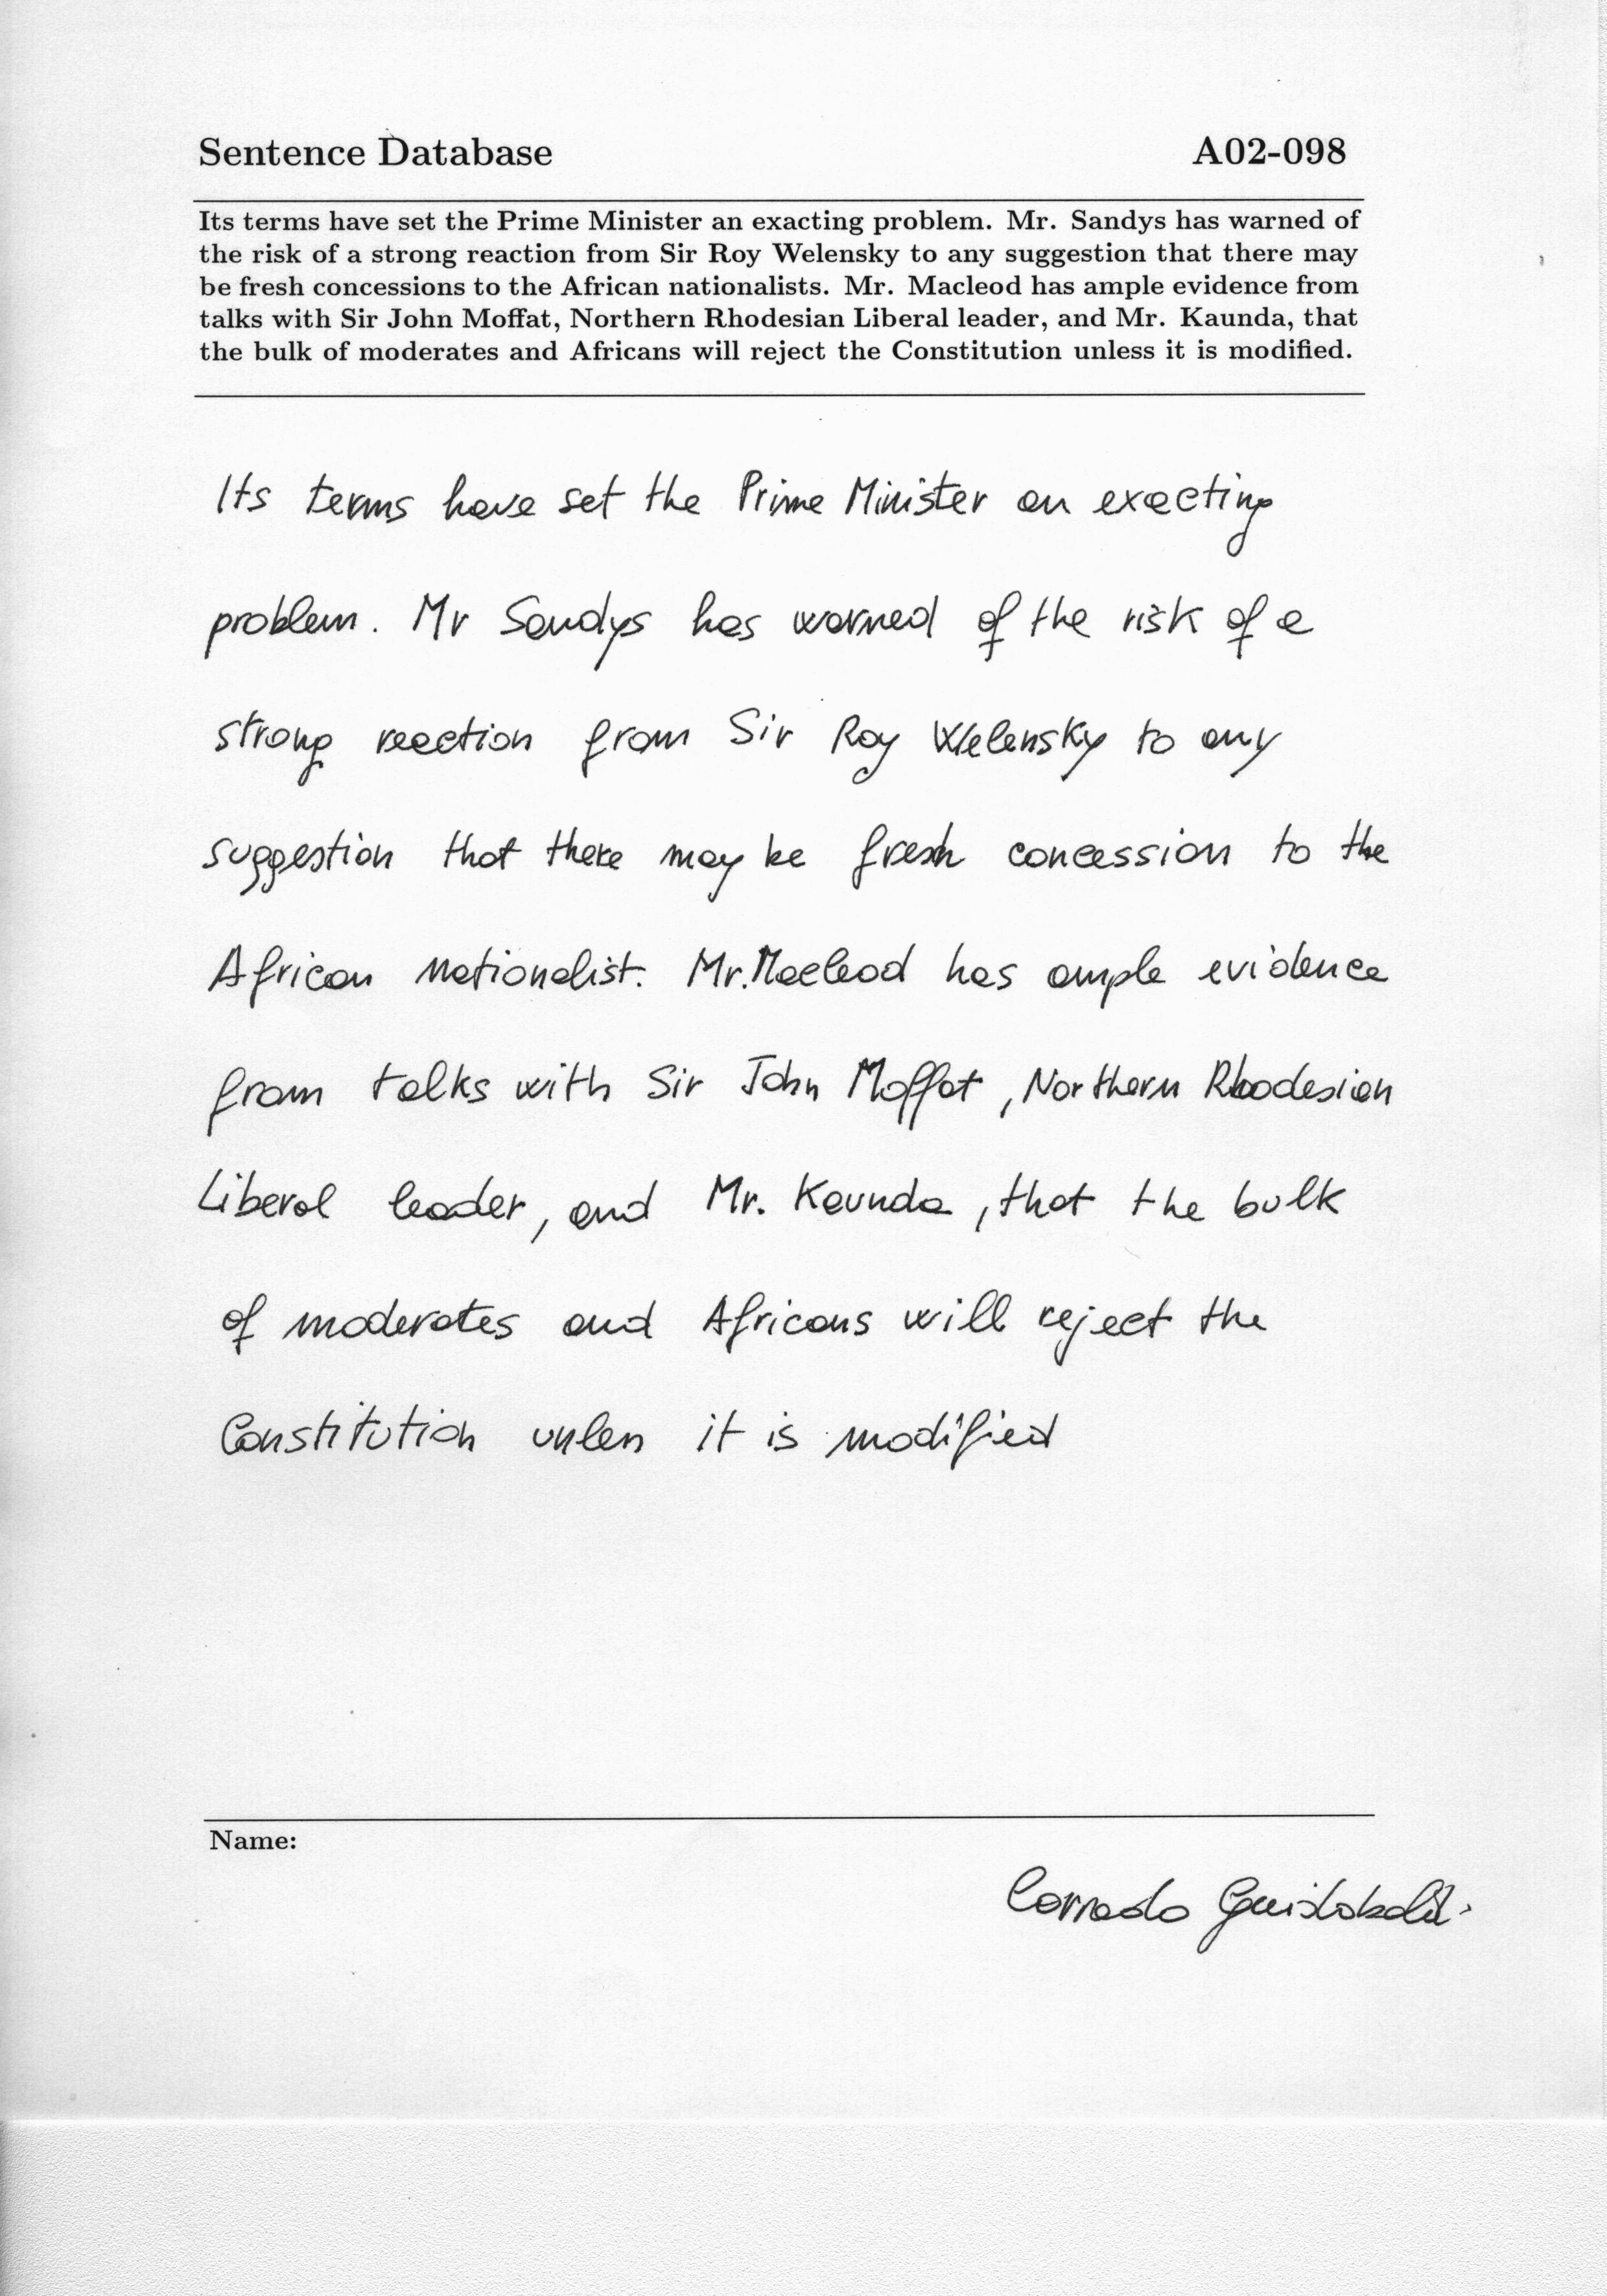 Sentence Database A02-098
Its terms have set the Prime Minister an exacting problem. Mr. Sandys has warned of
the risk of a strong reaction from Sir Roy Welensky to any suggestion that there may
be fresh concessions to the African nationalists. Mr. Macleod has ample evidence from
talks with Sir John Moffat, Northern Rhodesian Liberal leader, and Mr. Kaunda, that
the bulk of moderates and Africans will reject the Constitution unless it is modified.
Its terms have set the Prime Minister an exacting
problem. Mr Sandys has warned of the risk of a
strong reaction from Sir Roy Welensky to any
suggestion that there may be fresh concession to the
African nationalist. Mr. Macleod has ample evidence
from talks with Sir John Moffat, Northern Rhodesian
Liberal leader, and Mr. Kaunda, that the bulk
of moderates and Africans will reject the
Constitution unless it is modified
Name:
Corrado Guidobaldi